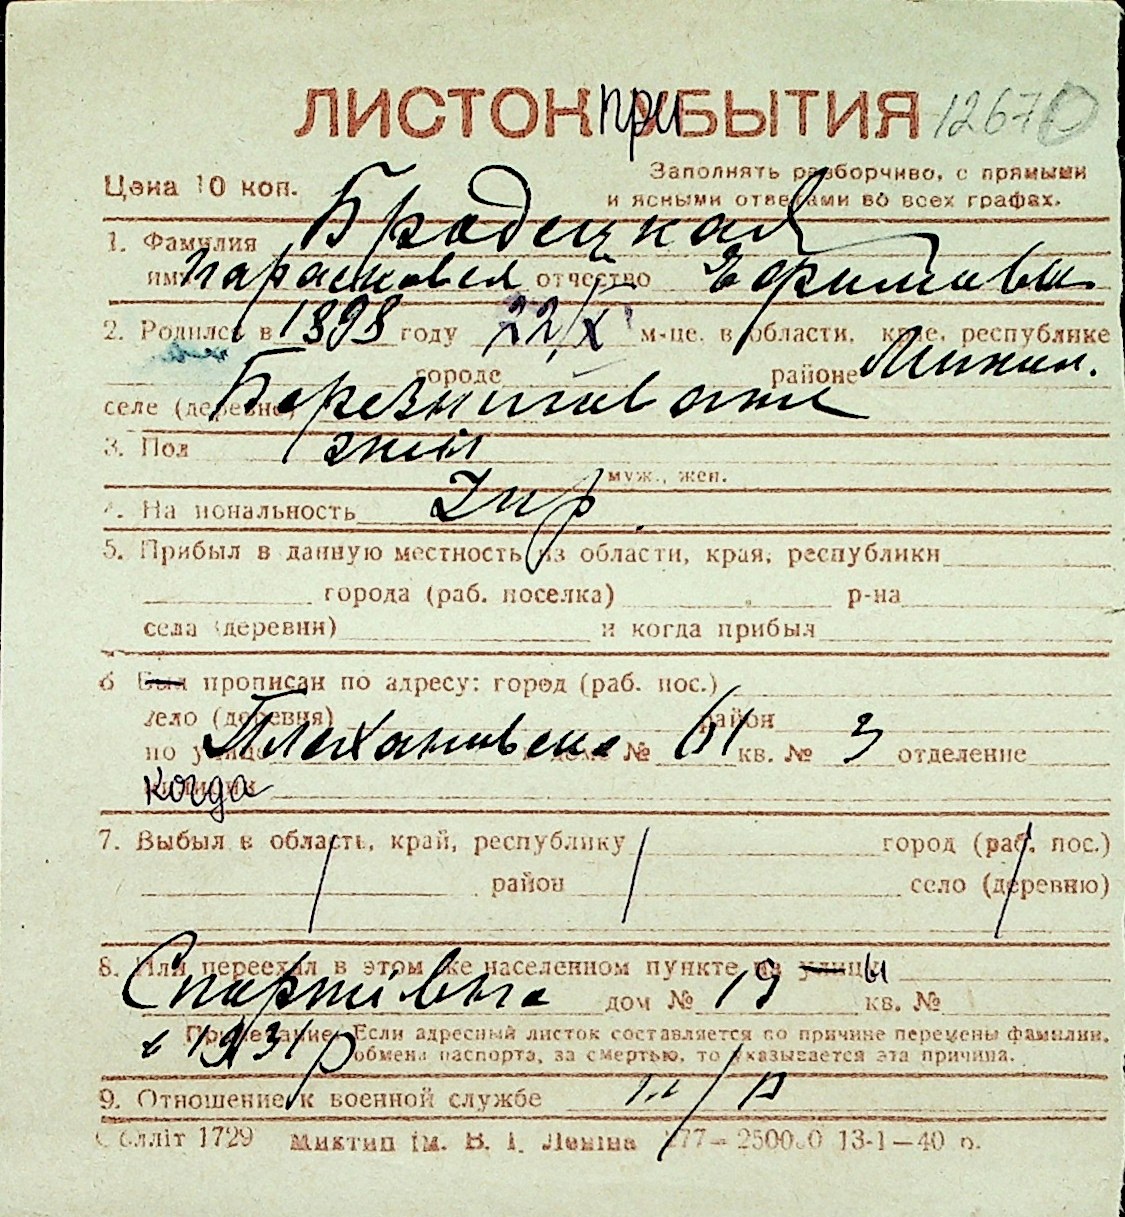 ЛИСТОК при УБЫТИЯ 12670
Цена 10 коп.
Заполнять разборчиво, с прямыми
и ясными ответами во всех графах.
1. Фамилия Бродецкая
имя Парасковея отчество
2. Родился в 1898 году 22/X м-це, в области, крае, республике
городе районе Микол.
селе (деревне)
3. Пол жен
муж., жен.
4. Национальность Укр.
5. Прибыл в данную местность из области, края, республики
города (раб. поселка) р-на
села (деревни) и когда прибыл
6 Был прописан по адресу: город (раб. пос.)
село (деревня) район
по улице Плехановска дом № 61 кв. № 3 отделение
милиции когда
7. Выбыл в область, край, республику город (раб. пос.)
район село (деревню)
8. Или переехал в этом же населенном пункте на улицы
дом № 19 кв. №
с 1931 р
Примечание: Если адресный листок составляется по причине перемены фамилии,
обмена паспорта, за смертью, то указывается эта причина.
9. Отношение к военной службе
Облліт 1729 Миктип ім. В. І. Леніна 277— 250000 13-1—40 р.